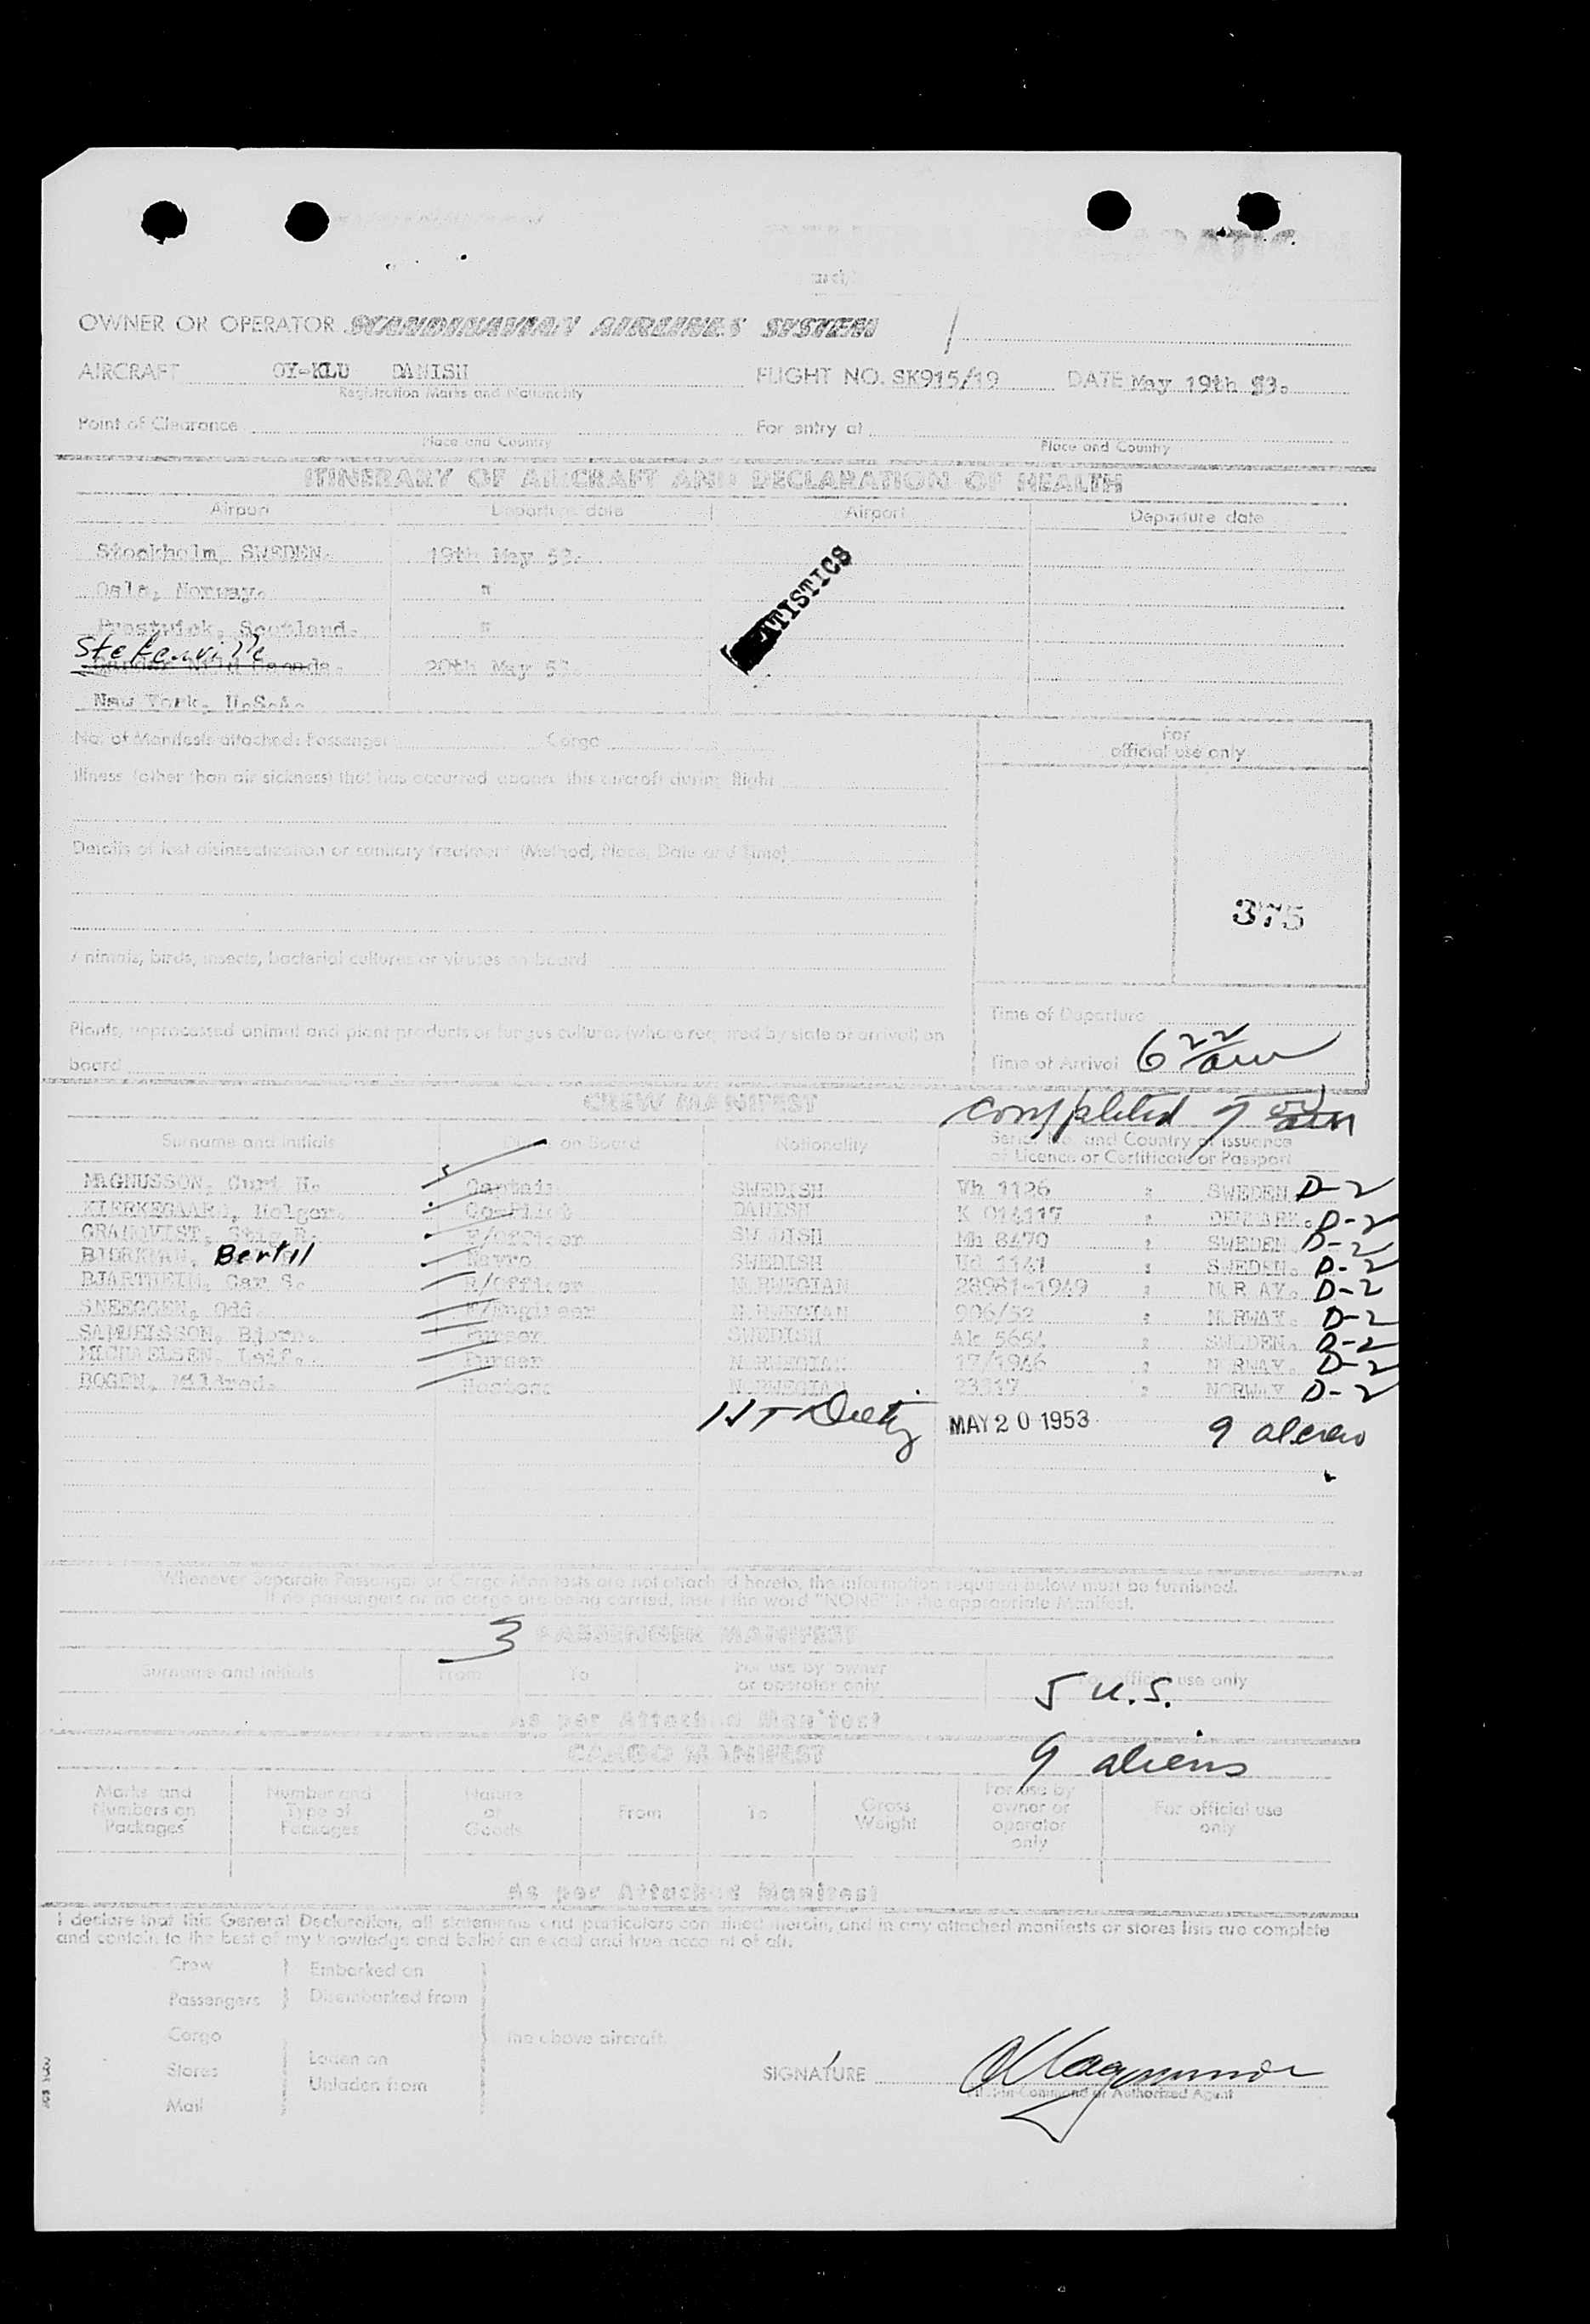 OWNER OR OPERATOR SCANDINAVIAN AIRLINES SYSTEM
AIRCRAFT OY-KLU DANISH FLIGHT NO. SK915/19 DATE May 19th 53.
Registration Marks and Nationality
Point of Clearance For entry at
Place and Country Place and Country
ITINERARY OF AIRCRAFT AND DECLARATION OF HEALTH
Airport Departure date Airport Departure date
Stockholm, SWEDEN. 19th May 53.
Oslo, Norway. "
Prestwick, Scotland. "
Stefenville
20th May 53.
New York, U.S.A.
No. of Manifests attached: Passenger Cargo
For
official use only
Illness (other than air sickness) that has occurred aboard this aircraft during flight
Details of last disinsectization or sanitary treatment (Method, Place, Date and Time)
375
Animals, birds, insects, bacterial cultures or viruses on board
Plants, unprocessed animal and plant products or fungus cultures (where required by state of arrival) on
board
Time of Departure
Time of Arrival 6 22 am
CREW MANIFEST
completed 7
Surname and initials Duties on Board Nationality Serial No. and Country of issuance
of Licence or Certificate or Passport
MAGNUSSON, Curt H. Captain SWEDISH Vh 1126 : SWEDEN D-2
KIERKEGAARD, Holger. Co-Pilot DANISH K 014117 : DENMARK. D-2
GRANQVIST, Stig R. F/Officer SWEDISH Mh 8470 : SWEDEN. D-2
BJORKMAN, Bertil Navro SWEDISH Ud 1141 : SWEDEN. D-2
BJARTHEIN, Car S. R/Officer NORWEGIAN 28981-1949 : NORWAY. D-2
SNEEGGEN, Odd. F/Engineer NORWEGIAN 906/52 : NORWAY. D-2
SAMUELSSON, Bjorn. Purser SWEDISH Ak 5654 : SWEDEN. D-2
MICHAELSEN, Leif. Purser NORWEGIAN 17/1946 : NORWAY. D-2
BOGEN, Mildred. Hostess NORWEGIAN 23517 : NORWAY D-2
MAY 20 1953 9
Whenever Separate Passenger or Cargo Manifests are not attached hereto, the information required below must be furnished.
If no passengers or no cargo are being carried, insert the word "NONE" in the appropriate Manifest.
3 PASSENGER MANIFEST
Surname and initials From To For use by owner
or operator only
For official use only
5 U.S.
As per Attached Manifest
CARGO MANIFEST
9 aliens
Marks and
Numbers on
Packages
Number and
Type of
Packages
Nature
of
Goods
From To Gross
Weight
For use by
owner or
operator
only
For official use
only
As per Attached Manifest
I declare that this General Declaration, all statements and particulars contained therein, and in any attached manifests or stores lists are complete
and contain to the best of my knowledge and belief an exact and true account of all.
Crew Embarked on
Passengers Disembarked from
Cargo the above aircraft.
Stores Laden on
Unladen from
Mail
SIGNATURE
Pilot-in-Command or Authorized Agent